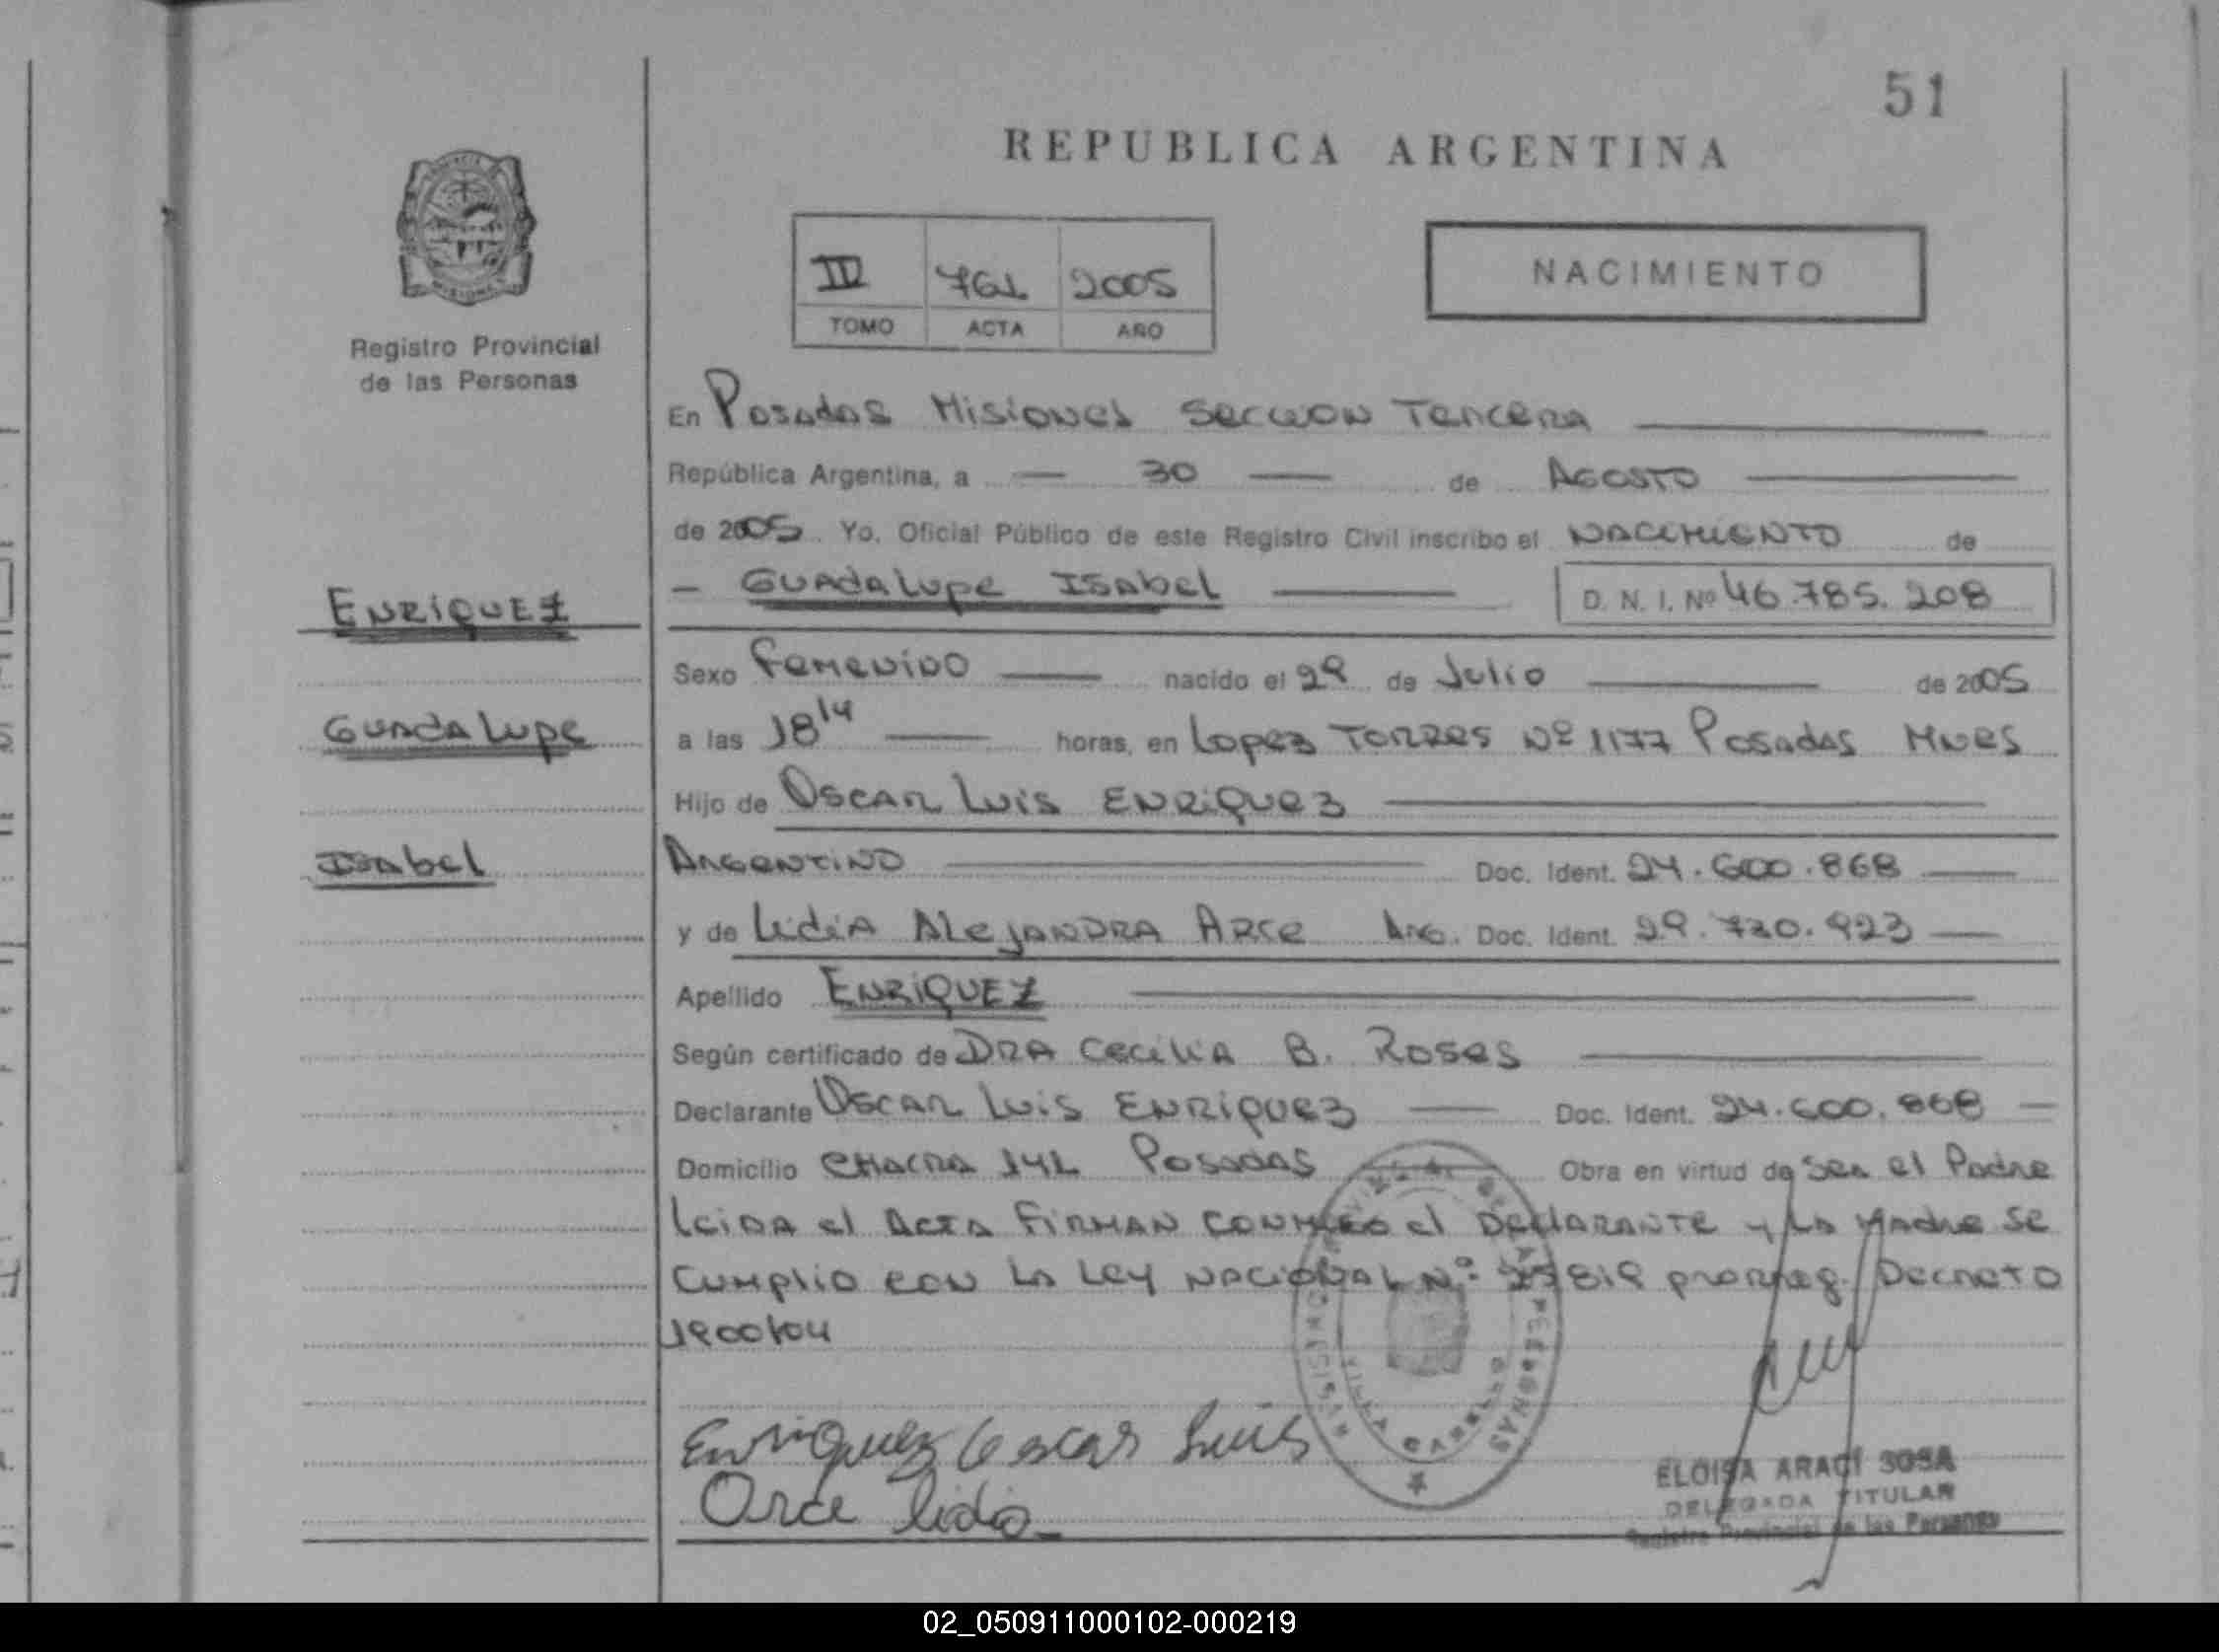 51
REPUBLICA ARGENTINA
III 761 2005
TOMO ACTA AÑO
NACIMIENTO
Registro Provincial
de las Personas
En Posadas Misiones Seccion Tercera
República Argentina, a 30 de Agosto
de 2005 Yo, Oficial Público de este Registro Civil inscribo el NACIMIENTO de
ENRIQUEZ
Guadalupe Isabel D. N. I. Nº 46.785.208
Sexo Femenino nacido el 29 de Julio de 2005
Guadalupe
a las 18 14 horas, en Lopez Torres Nº 1177 Posadas Mnes
Hijo de Oscar Luis Enriquez
Isabel
Argentino Doc. Ident. 24.600.868
y de Lidia Alejandra Arce Arg. Doc. Ident. 29.730.923
Apellido ENRIQUEZ
Según certificado de DRA Cecilia B. Roses
Declarante Oscar Luis Enriquez Doc. Ident. 24.600.868
Domicilio Chacra 141 Posadas Obra en virtud de Ser el Padre
Leida el Acta Firman conmigo el Declarante y la Madre Se
Cumplio con la Ley Nacional Nº 25819 prorrog. Decreto
1900/04
Enriquez Oscar Luis
Arce lidia
ELOISA ARACI SOSA
DELEGADA TITULAR
Registro Provincial de las Personas
02_050911000102-000219